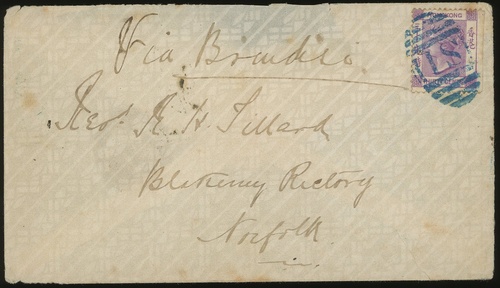 Via Brindisi
Revd. R. H. Tillard
Blakeney Rectory
Norfolk.